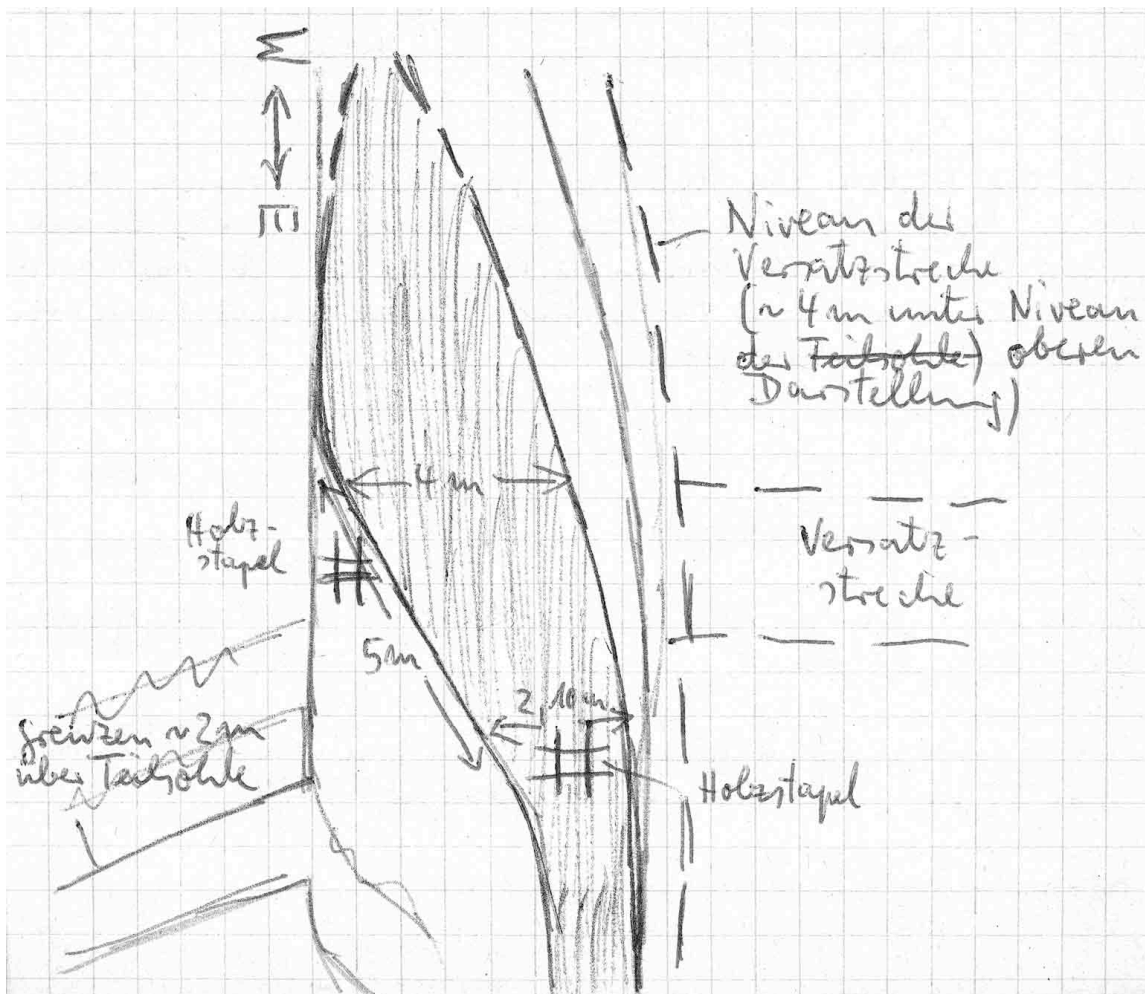 W
E
Niveau der
Versatzstrecke
(~ 4 m unter Niveau
der Teilsohle) oberen
Darstellung)
4 m
Holz-
stapel
Versatz-
strecke
5 m
2,10 m
grenzen ~ 2 m
über Teilsohle
Holzstapel